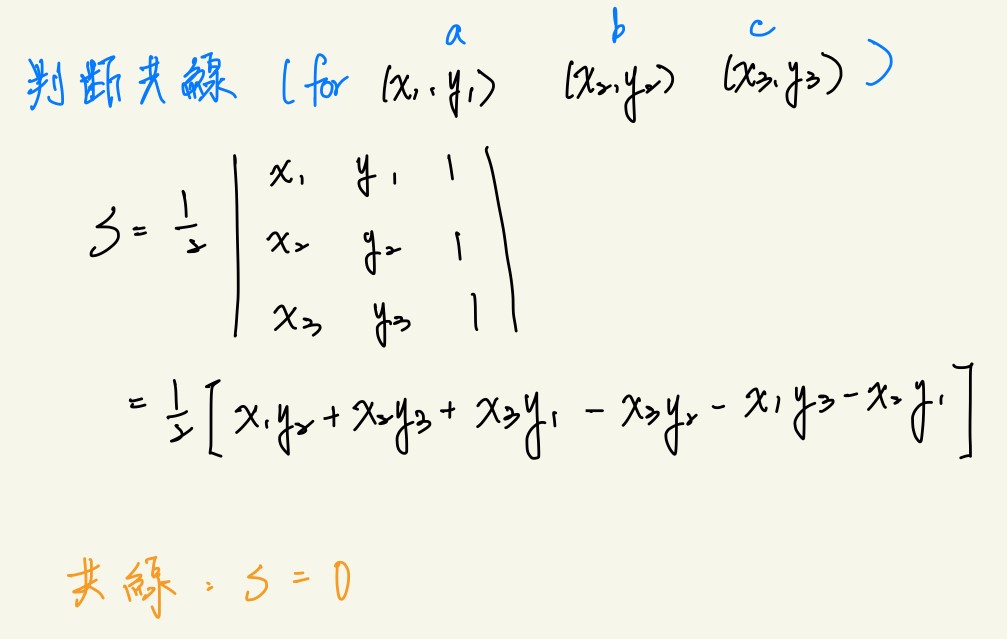 a b c
判斷共線 (for (x₁, y₁) (x₂, y₂) (x₃, y₃) )
x₁ y₁ 1
S = 1/2 | x₂ y₂ 1 |
x₃ y₃ 1
= 1/2 [ x₁y₂ + x₂y₃ + x₃y₁ - x₃y₂ - x₁y₃ - x₂y₁ ]
共線 : S = 0